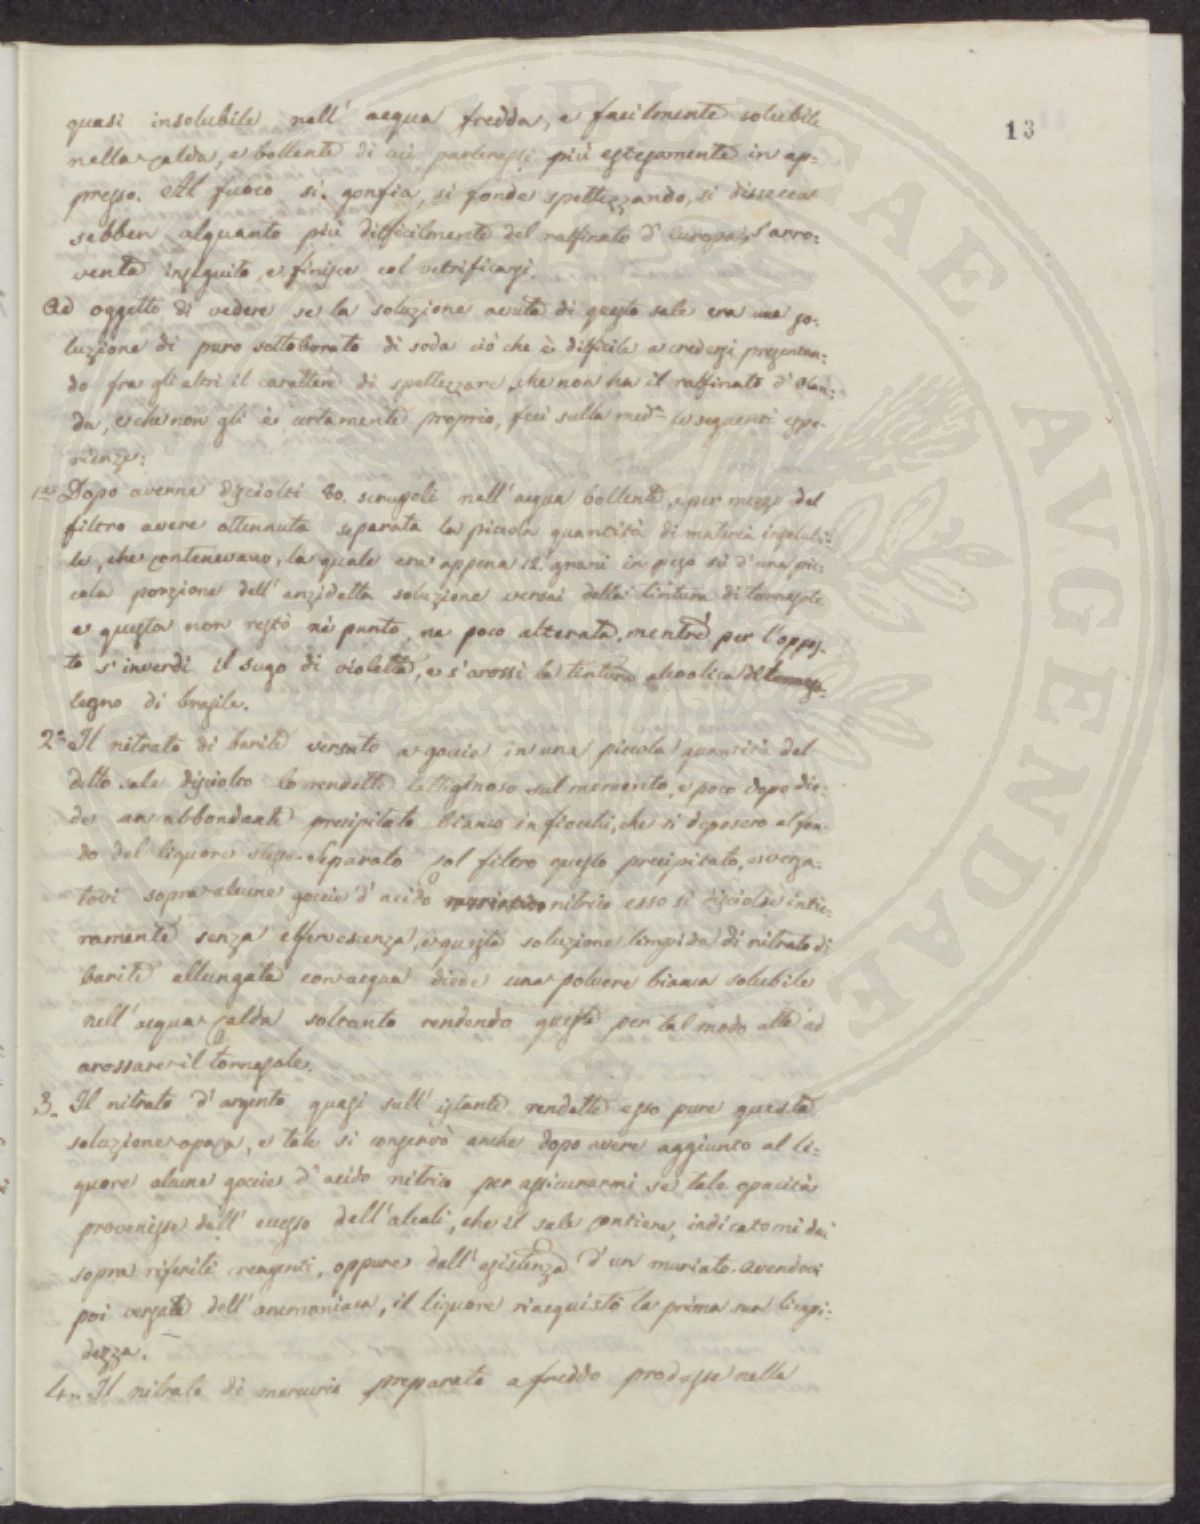 13
quasi insolubile nell' acqua fredda, e facilmente solubile
nella calda, e bollente di cui parlerassi più estesamente in ap=
presso. Al fuoco si gonfia, si fonde spettezzando, si dissecca
sebben alquanto più difficilmente del raffinato d' Europa, s'arro=
venta inseguito, e finisce col vetrificarsi.
Ad oggetto di vedere se la soluzione avuta di questo sale era una so=
luzione di puro sottoborato di soda ciò che è difficile a credersi presentan=
do fra gli altri il carattere di spettezzare, che non ha il raffinato d' Olan=
da, e che non gli è certamente proprio, feci sulla med.a le seguenti espe=
rienze:
1.a Dopo averne disciolti 80. scrupoli nell' acqua bollente, e per mezzo del
filtro avere ottennuta separata la piccola quantità di materia insolubi=
le, che contenevano, la quale era appena 12. grani in peso sù d' una pic=
cola porzione dell' anzidetta soluzione versai della tintura di tornasole
e questa non restò nè punto, nè poco alterata, mentre per l' oppos=
to s' inverdi il sugo di violette, e s' arossi la tintura alcoolica di
legno di brasile.
2.a Il nitrato di barite versato a goccie in una piccola quantità del
detto sale disciolto lo rendette lattiginoso sul momento, e poco dopo die=
de un abbondante precipitato bianco in fiocchi, che si deposero al fon=
do del liquore stesso. Separato col filtro questo precipitato, e versa=
tovi sopra alcune goccie d' acido nitrico esso si disciolse intie=
ramente senza effervescenza, e questa soluzione limpida di nitrato di
barite allungata con acqua diede una polvere bianca solubile
nell' acqua calda soltanto rendendo questa per tal modo atta ad
arossare il tornasole.
3. Il nitrato d' argento quasi sull' istante rendette esso pure questa
soluzione opaca, e tale si conservò anche dopo avere aggiunto al li=
quore alcune goccie d' acido nitrico per assicurarmi se tale opacità
provenisse dall' eccesso dell' alcali, che il sale contiene, indicatomi dai
sopra riferiti reagenti, oppure dall' esistenza d' un muriato. Avendovi
poi versata dell' ammoniaca, il liquore riacquistò la prima sua limpi=
dezza.
4. Il nitrato di mercurio preparato a freddo prodasse nella
PUBLICAE AVGENDAE